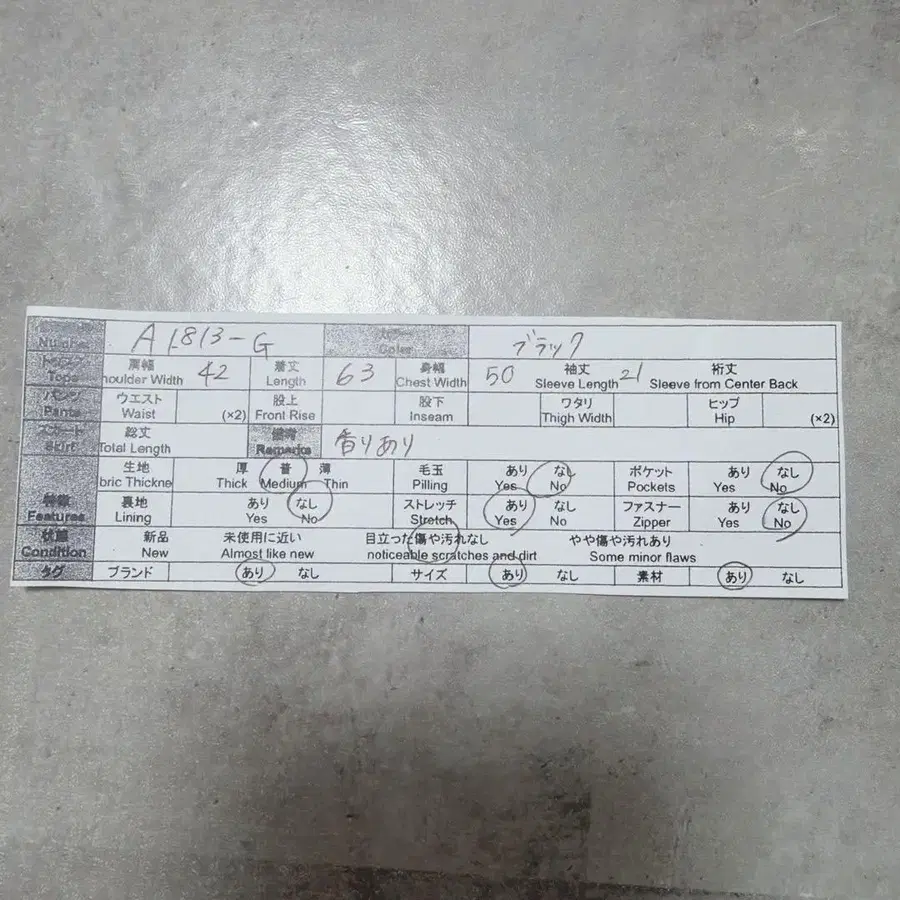 Number A1813-G Color ブラック
トップス 肩幅 42 着丈 63 身幅 50 袖丈 21 裄丈
Tops houlder Width Length Chest Width Sleeve Length Sleeve from Center Back
パンツ ウエスト 股上 股下 ワタリ ヒップ
Pants Waist (×2) Front Rise Inseam Thigh Width Hip (×2)
スカート 総丈 備考 香りあり
Skirt Total Length Remarks
生地 厚 普 薄 毛玉 あり なし ポケット あり なし
bric Thickne Thick Medium Thin Pilling Yes No Pockets Yes No
特徴 裏地 あり なし ストレッチ あり なし ファスナー あり なし
Features Lining Yes No Stretch Yes No Zipper Yes No
状態 新品 未使用に近い 目立った傷や汚れなし やや傷や汚れあり
Condition New Almost like new noticeable scratches and dirt Some minor flaws
タグ ブランド あり なし サイズ あり なし 素材 あり なし